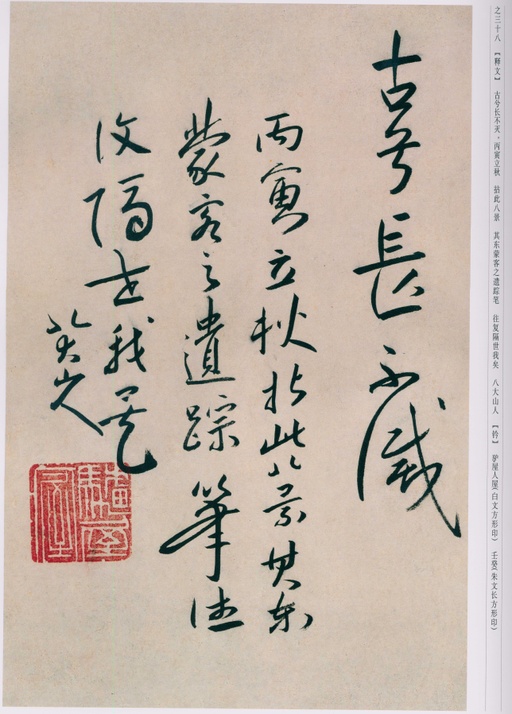 之三十八 【释文】 古兮长不灭，丙寅立秋 拈此八景 其东蒙客之遗踪笔 往复隔世我矣 八大山人 【钤】 驴屋人屋(白文方形印) 壬癸(朱文长方形印)
古兮長不滅
丙寅立秋拈此八景其東
蒙客之遺踪筆往
復隔世我矣
八大山人
驢屋人屋